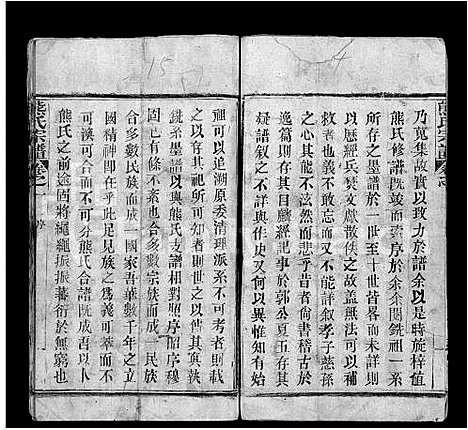 乃蒐集故實以致力於譜余以是時旋梓值
熊氏修譜既竣而索序於余余閱銑祖一系
所存之墨譜於一世至十世皆畧而未詳則
以歷經兵燹文獻散佚之故蓋無法可以補
救者也而不敢忘而又不能詳叙孝子慈孫
之心其能不泫然而悲乎昔者尚書稽古於
逸篇則存其目麟經記事於郭公夏五存其
疑譜叙之作與作史又何以異惟知有始
祖可以追溯原委清理派系不可考者則載
之以有所可知者則世次之以俾其與執
銑系墨譜以與熊氏支譜相對照序昭序穆
已有條不紊也合多數宗族而成一民族
合多數民族而成一國家吾華數千年之立
國精神即在乎此足見族之為義可大可
可渙可合不可分熊氏合譜既成吾以
熊氏之前途固將繩繩振振蕃衍於無窮也
熊氏宗譜
卷之一
序
15
4